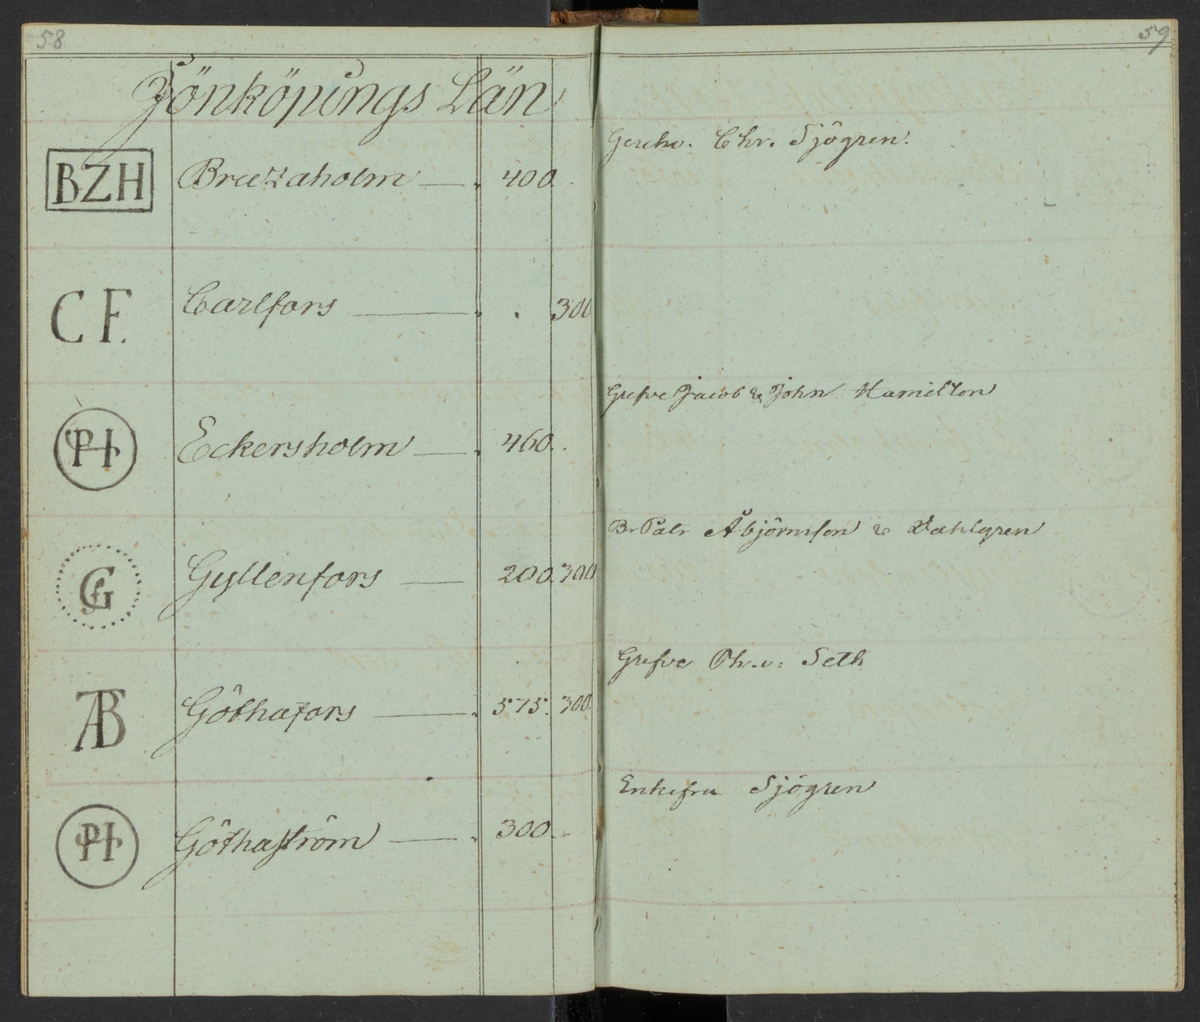 58
59
Jönköpings Län
BZH Bruzaholm — 400
Geschv. Chr. Sjögren.
CF. Carlfors — . 300
Grefve Jacob & John Hamilton
PH Eckersholm — 460.
Åbjörnsson & Dahlgren
GF Gyllenfors — 200. 300
Grefve Seth
AB Göthafors — 575. 300.
Enkefru Sjögren
PH Göthaström — 300